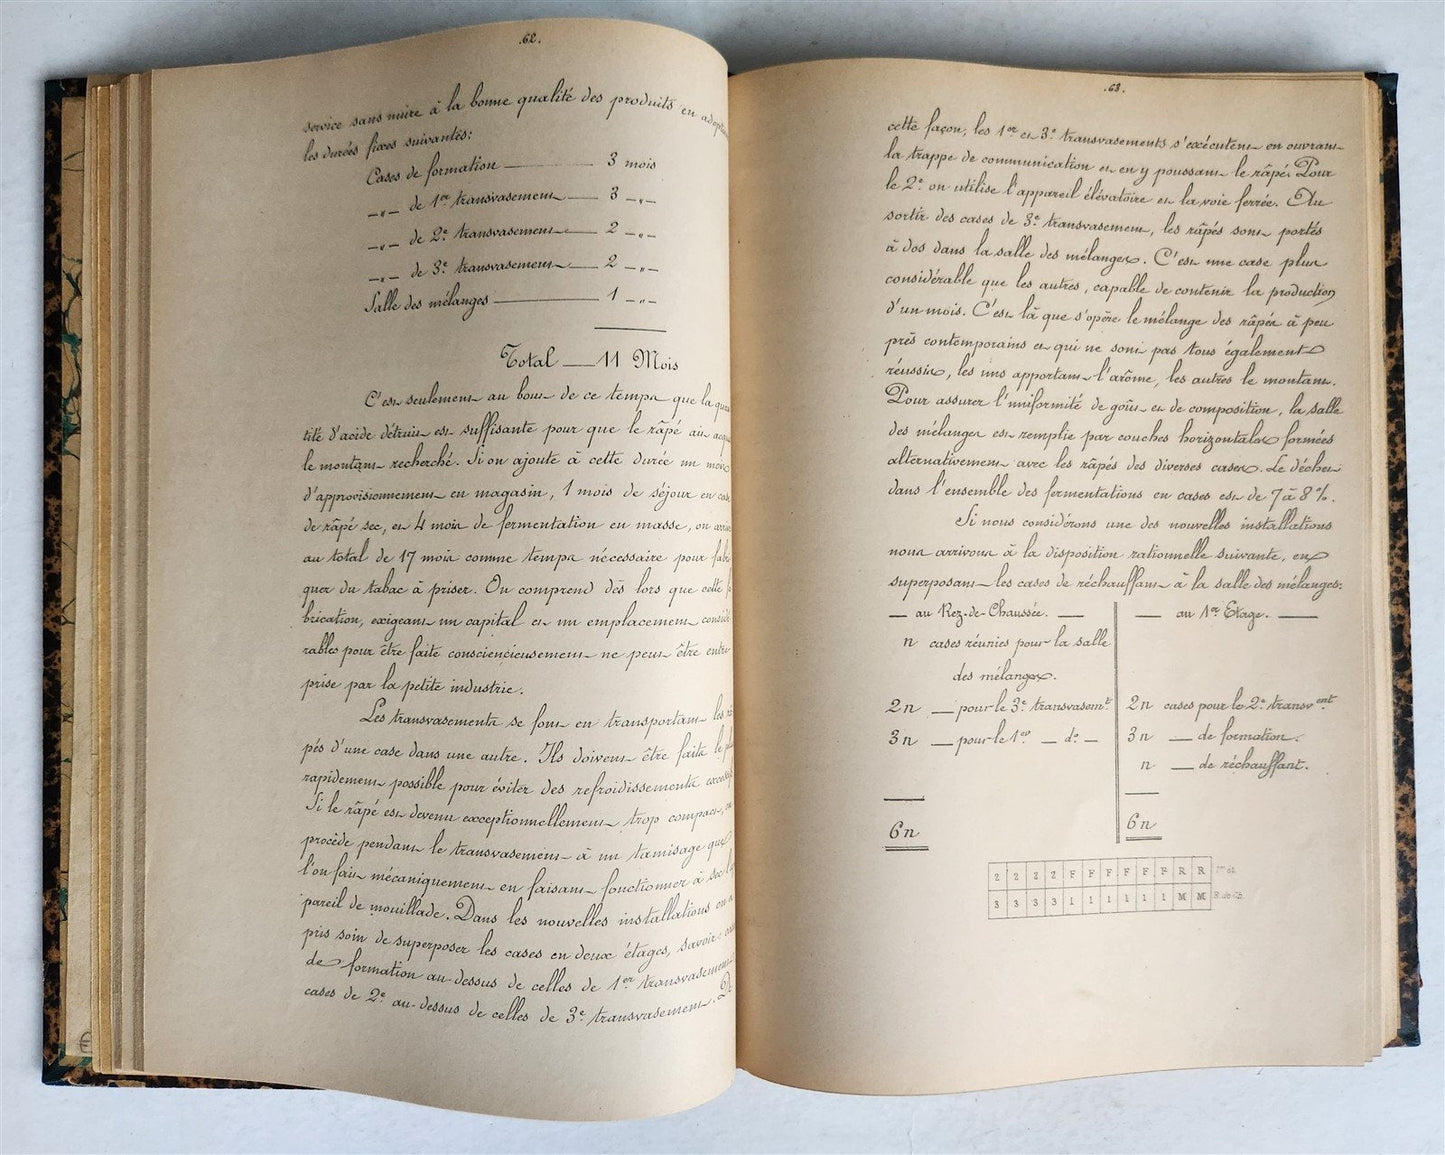 .62.
service sans nuire à la bonne qualité des produits en adoptan
les durées fixes suivantes:
Cases de formation — 3 mois
—"— de 1er transvasement — 3 —"—
—"— de 2e transvasement — 2 —"—
—"— de 3e transvasement — 2 —"—
Salle des mélanges — 1 —"—
Total — 11 Mois
C'est seulement au bout de ce temps que la quan
tité d'acide détruit est suffisante pour que le râpé ait acqui
le montant recherché. Si on ajoute à cette durée un mois
d'approvisionnement en magasin, 1 mois de séjour en case
de râpé sec, et 4 mois de fermentation en masse, on arrive
au total de 17 mois comme temps nécessaire pour fabri
quer du tabac à priser. On comprend dès lors que cette fa
brication, exigeant un capital et un emplacement considé
rables pour être faite consciencieusement ne peut être entre
prise par la petite industrie.
Les transvasements se font en transportant les râ
pés d'une case dans une autre. Ils doivent être faits le plus
rapidement possible pour éviter des refroidissements excessif
Si le râpé est devenu exceptionnellement trop compact, on
procède pendant le transvasement à un tamisage que
l'on fait mécaniquement en faisant fonctionner à sec l'ap
pareil de mouillade. Dans les nouvelles installations on a
pris soin de superposer les cases en deux étages, savoir: cases
de formation au-dessus de celles de 1er transvasement
cases de 2e au-dessus de celles de 3e transvasement. De
.63.
cette façon, les 1er et 3e transvasements s'exécutent en ouvrant
la trappe de communication et en y poussant le râpé. Pour
le 2e on utilise l'appareil élévatoire et la voie ferrée. Au
sortir des cases de 3e transvasement, les râpés sont portés
à dos dans la salle des mélanges. C'est une case plus
considérable que les autres, capable de contenir la production
d'un mois. C'est là que s'opère le mélange des râpés à peu
près contemporains et qui ne sont pas tous également
réussis, les uns apportant l'arôme, les autres le montant.
Pour assurer l'uniformité de goût et de composition, la salle
des mélanges est remplie par couches horizontales formées
alternativement avec les râpés des diverses cases. Le déchet
dans l'ensemble des fermentations en cases est de 7 à 8 %.
Si nous considérons une des nouvelles installations
nous arrivons à la disposition rationnelle suivante, en
superposant les cases de réchauffant à la salle des mélanges.
— au Rez-de-Chaussée. —
n cases réunies pour la salle
des mélanges.
2n — pour le 3e transvasemt
3n — pour le 1er — do —
6n
— au 1er Etage. —
2n cases pour le 2e transvent
3n — de formation.
n — de réchauffant.
6n
2 2 2 2 F F F F F F R R 1er ét.
3 3 3 3 1 1 1 1 1 1 M M R. de Ch.